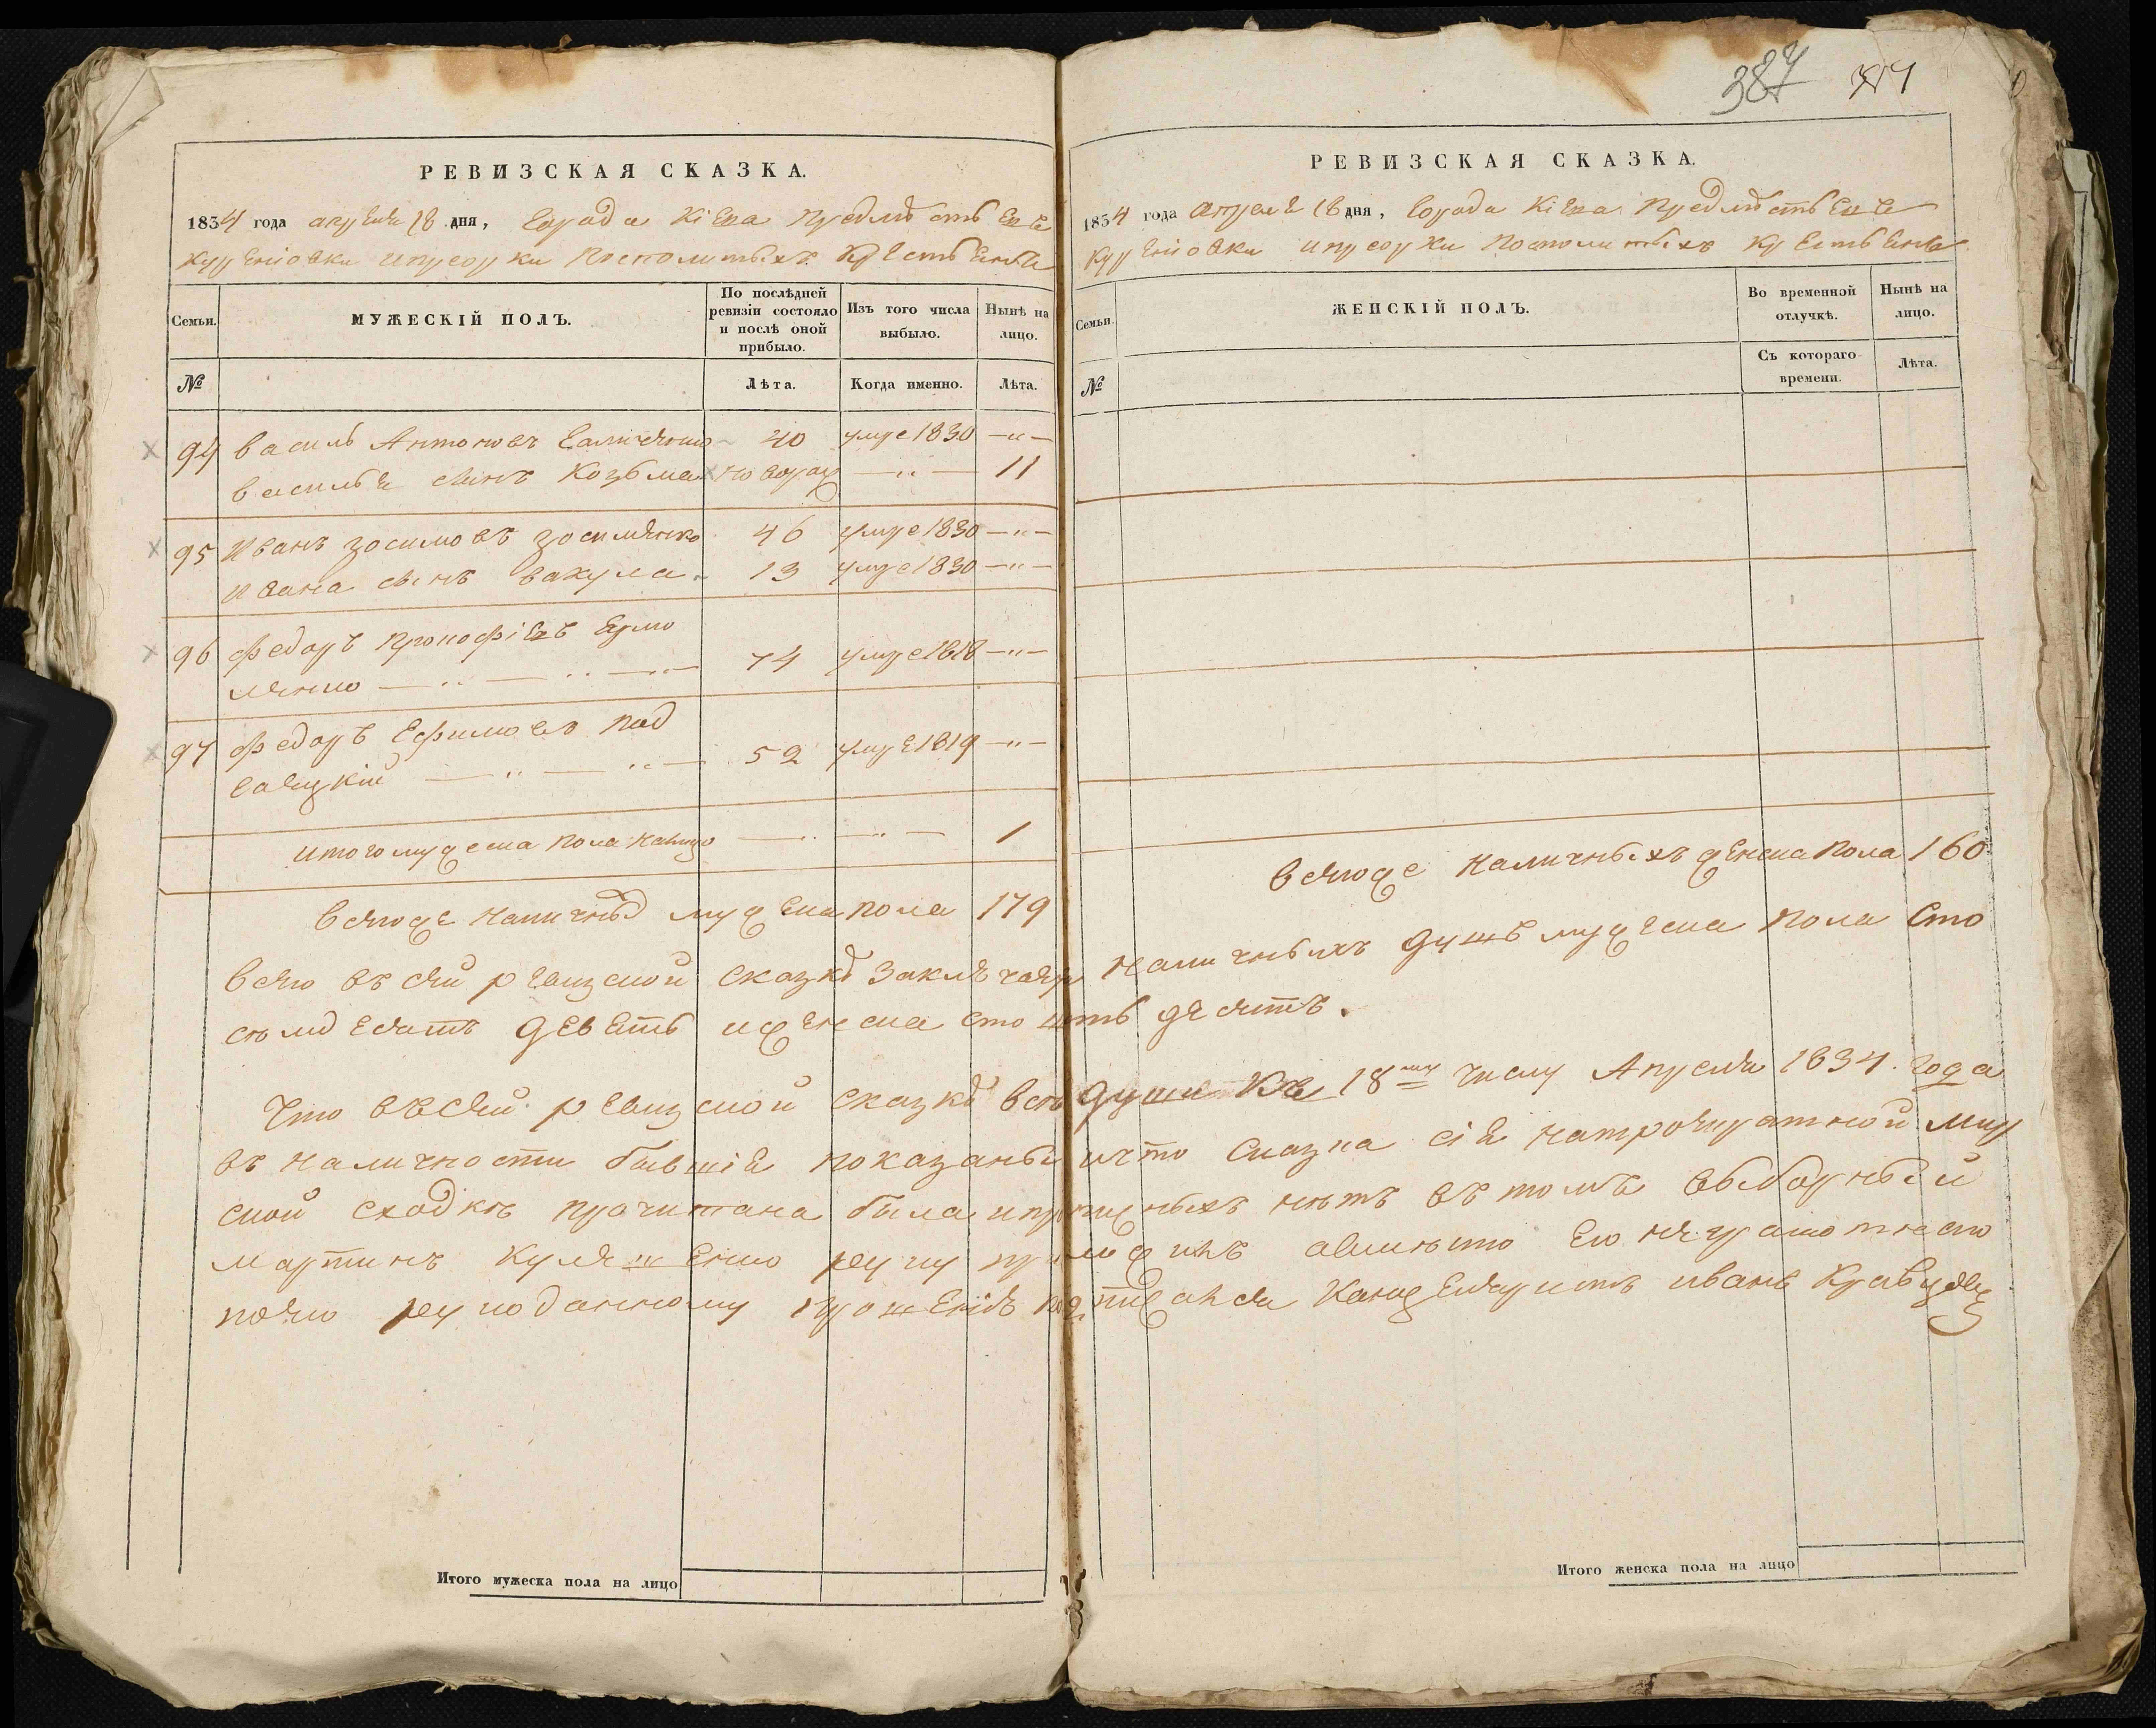 РЕВИЗСКАЯ СКАЗКА.
1834 года апреля 18 дня, Города Кіева Предмѣстьевъ
Куреніовки и присорки Посполитыхъ Крестьянъ
Семьи.
МУЖЕСКІЙ ПОЛЪ.
По послѣдней ревизіи состояло и послѣ оной прибыло.
Изъ того числа выбыло.
Нынѣ на лицо.
№
Лѣта.
Когда именно.
Лѣта.
94 Василь Антоновъ 40 умре 1830 —"—
Василья сынъ Козьма новорож —"— 11
95 Иванъ Зосимовъ Зосименко 46 умре 1830 —"—
Ивана сынъ Вакула 13 умре 1830 —"—
96 Федоръ Прокофіевъ Ермо
ленко —"—"—"— 74 умре 1818 —"—
97 Федоръ Ефимовъ Под
гаецкій —"—"— 52 умре 1819 —"—
Итого мужеска пола налицо —"—"— 1
Всего же наличныхъ мужеска пола 179
РЕВИЗСКАЯ СКАЗКА.
387
1834 года Апреля 18 дня, Города Кіева Предмѣстьевъ
Куреніовки и присорки Посполитыхъ Крестьянъ
Семьи.
ЖЕНСКІЙ ПОЛЪ.
Во временной отлучкѣ.
Нынѣ на лицо.
№
Съ котораго времени.
Лѣта.
Всего же наличныхъ женска пола 160
Всего въ сей ревизской сказкѣ заключаеця наличныхъ душъ мужеска пола Сто
семдесятъ девять и женска сто шестьдесятъ.
Что въ сей ревизской сказкѣ все души къ 18му числу Апреля 1834. года
въ наличности бывшіе показаны и что сказка сіе на мир
ской сходке прочитана была и прописныхъ нетъ въ томъ выборный
Мартинъ руку приложилъ а вместо его неграмотнаго
по его рукоданному прошенію подписался Канцеляристъ Иванъ
Итого мужеска пола на лицо
Итого женска пола на лицо